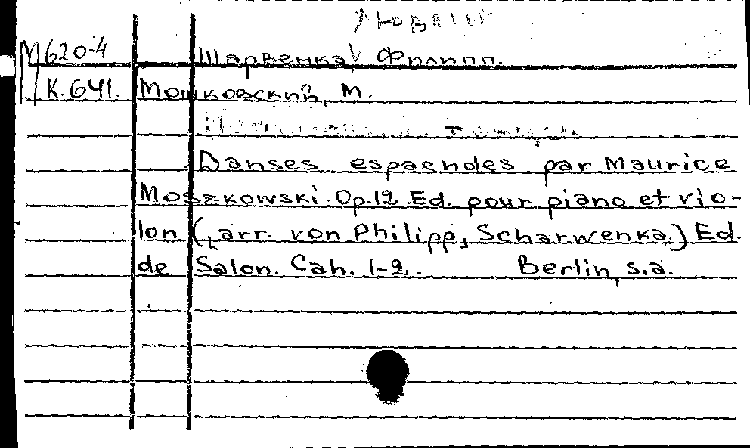 М620-4 Шарвенка, Филипп.
К.641. Мошковский, М.
Danses espagnoles par Maurice
Moszkowski. Op.12 Ed. pour piano et vio-
lon (arr. von Philipp Scharwenka.) Ed.
de Salon. Cah. 1-2. Berlin, s.a.